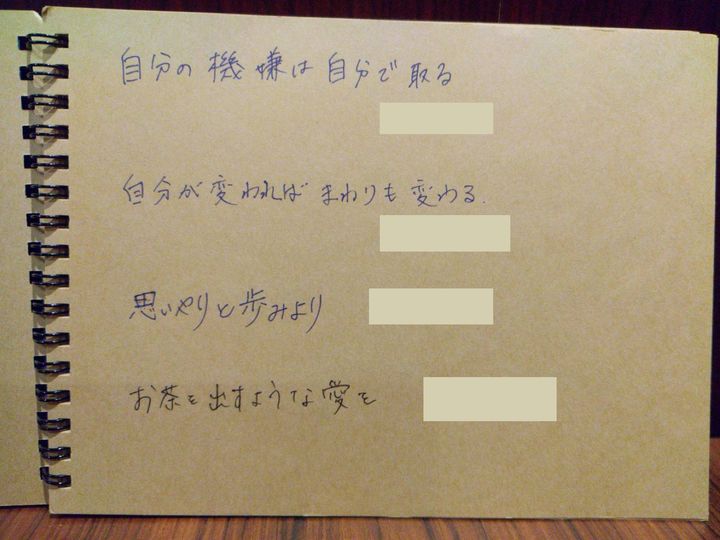 自分の機嫌は自分で取る
自分が変わればまわりも変わる.
思いやりと歩みより
お茶を出すような愛を